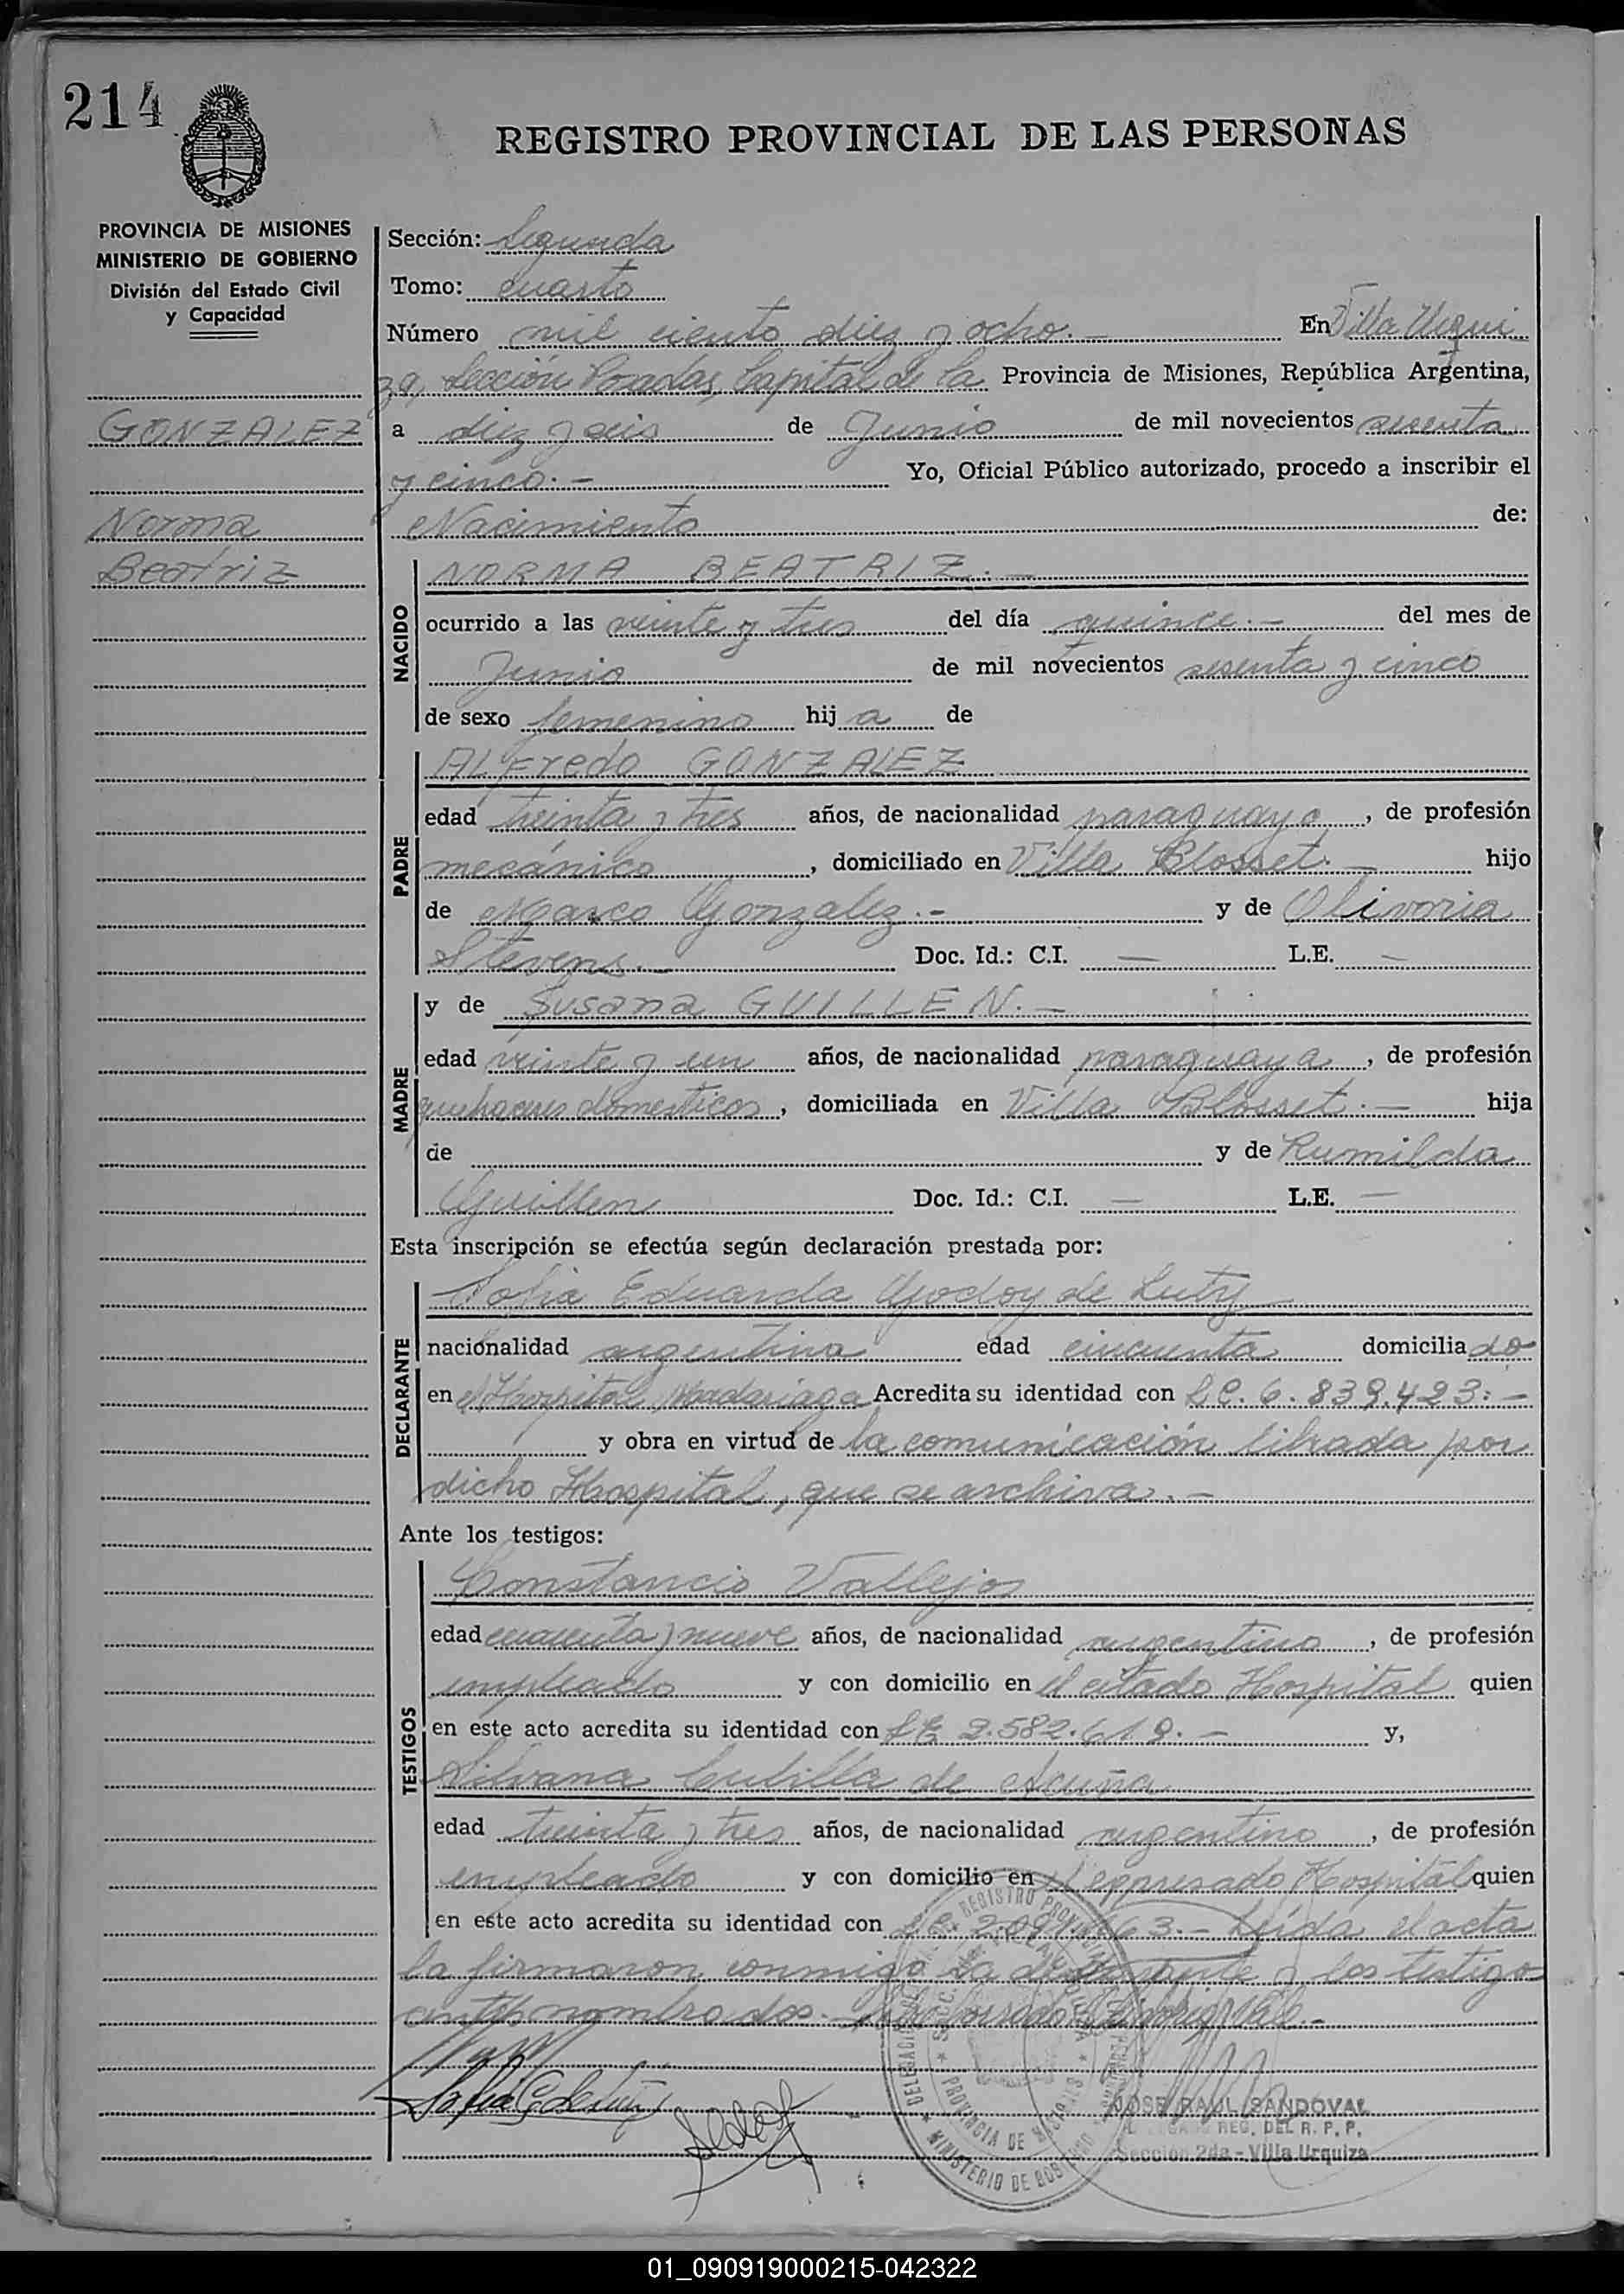 214
REGISTRO PROVINCIAL DE LAS PERSONAS
PROVINCIA DE MISIONES
MINISTERIO DE GOBIERNO
División del Estado Civil
y Capacidad
GONZALEZ
Norma
Beatriz
Sección: Segunda
Tomo: cuarto
Número mil ciento diez y ocho.- En Villa Urqui
za, Sección Posadas, Capital de la Provincia de Misiones, República Argentina,
a diez y seis de Junio de mil novecientos sesenta
y cinco.- Yo, Oficial Público autorizado, procedo a inscribir el
Nacimiento de:
NACIDO
NORMA BEATRIZ.-
ocurrido a las veinte y tres del día quince.- del mes de
Junio de mil novecientos sesenta y cinco
de sexo femenino hij a de
PADRE
ALFredo GONZALEZ
edad treinta y tres años, de nacionalidad paraguayo, de profesión
mecánico, domiciliado en Villa Blosset.- hijo
de Marco Gonzalez.- y de Olivoria
Stevens.- Doc. Id.: C.I. — L.E. —
MADRE
y de Susana GUILLEN.-
edad veinte y un años, de nacionalidad paraguaya, de profesión
quehaceres domesticos, domiciliada en Villa Blosset.- hija
de y de Rumilda
Guillen Doc. Id.: C.I. — L.E. —
Esta inscripción se efectúa según declaración prestada por:
DECLARANTE
Sofia Eduarda Godoy de Lutz
nacionalidad argentina edad cincuenta domicilia do
en el Hospital Madariaga Acredita su identidad con LC. 6.839.423:-
y obra en virtud de la comunicación librada por
dicho Hospital, que se archiva.-
Ante los testigos:
TESTIGOS
Constancio Vallejos
edad cuarenta y nueve años, de nacionalidad argentino, de profesión
empleado y con domicilio en el citado Hospital quien
en este acto acredita su identidad con LE 2.582.619.- y,
Silvana Cubilla de Acuña
edad treinta y tres años, de nacionalidad argentino, de profesión
empleado y con domicilio en el expresado Hospital quien
en este acto acredita su identidad con Leída el acta
la firmaron conmigo la declarante y los testigos
antes nombrados.-
JOSE RAUL SANDOVAL
REG. DEL R. P. P.
Sección 2da - Villa Urquiza
REGISTRO PROVINCIAL
PROVINCIA DE MISIONES
MINISTERIO DE GOBIERNO
01_090919000215-042322